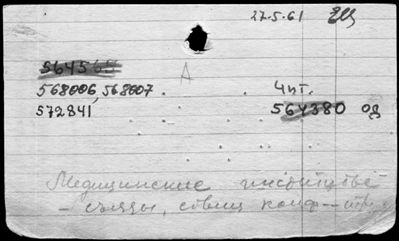 27-5.61
56456
А
568006, 568007
4 шт.
572841
564380 од
Медицинские институты
– съезды, совещ конф –